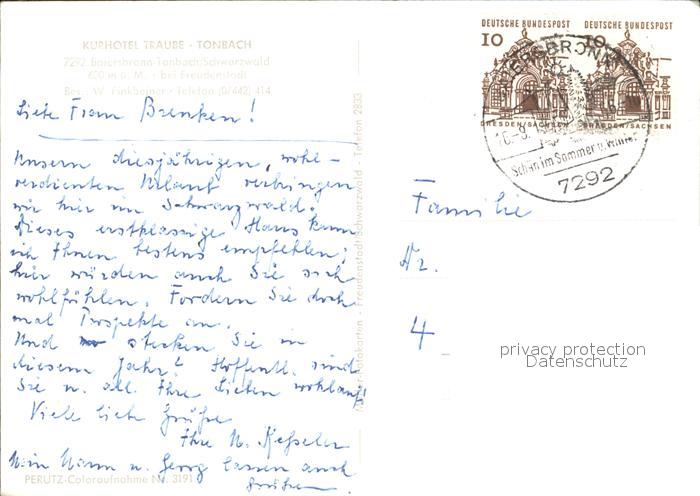 KURHOTEL TRAUBE - TONBACH
7292 Baiersbronn-Tonbach/Schwarzwald
600 m ü. M. - bei Freudenstadt
Bes.: W. Finkbeiner - Telefon (0/442) 414
Liebe Frau Brenken!
Unsern diesjährigen, wohl-
verdienten Urlaub verbringen
wir hier im Schwarzwald.
Dieses erstklassige Haus kann
ich Ihnen bestens empfehlen;
hier würden auch Sie sich
wohlfühlen. Fordern Sie doch
mal Prospekte an.
Und stecken Sie in
diesem Jahr? Hoffentl. sind
Sie u. all Ihre Lieben wohlauf!
Viele liebe Grüße
Ihre N. Kesseler
Mein Mann u. Georg lassen auch
grüßen
PERUTZ-Coloraufnahme Nr. 3191
Freudenstadt/Schwarzwald - Telefon 2833
DEUTSCHE BUNDESPOST
10
DRESDEN/SACHSEN
DEUTSCHE BUNDESPOST
10
DRESDEN/SACHSEN
Schön im Sommer u. Winter
7292
Familie
4
privacy protection
Datenschutz